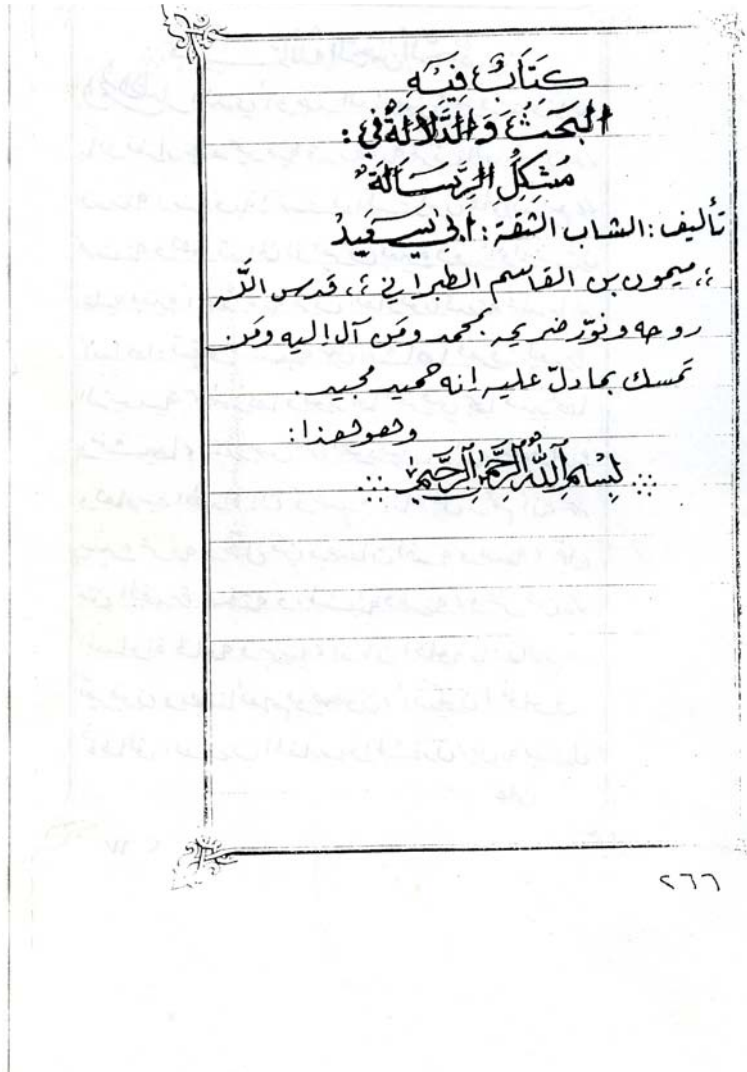 كتابٌ فيهِ
البحثُ وَالدَّلَالَةُ في:
مُشكِلِ الرِّسَالَةِ
تأليف: الشاب الثقة: أبي سَعيدْ
ميمون بن القاسم الطبراني، قدس اللّه
روحه ونوّر ضريحه بمحمد ومَن آل إليه ومَن
تمسك بما دلّ عليه إنه حميد مجيد.
وهو هذا:
بِسْمِ اللَّهِ الرَّحْمٰنِ الرَّحِيمِ
٢٦٦